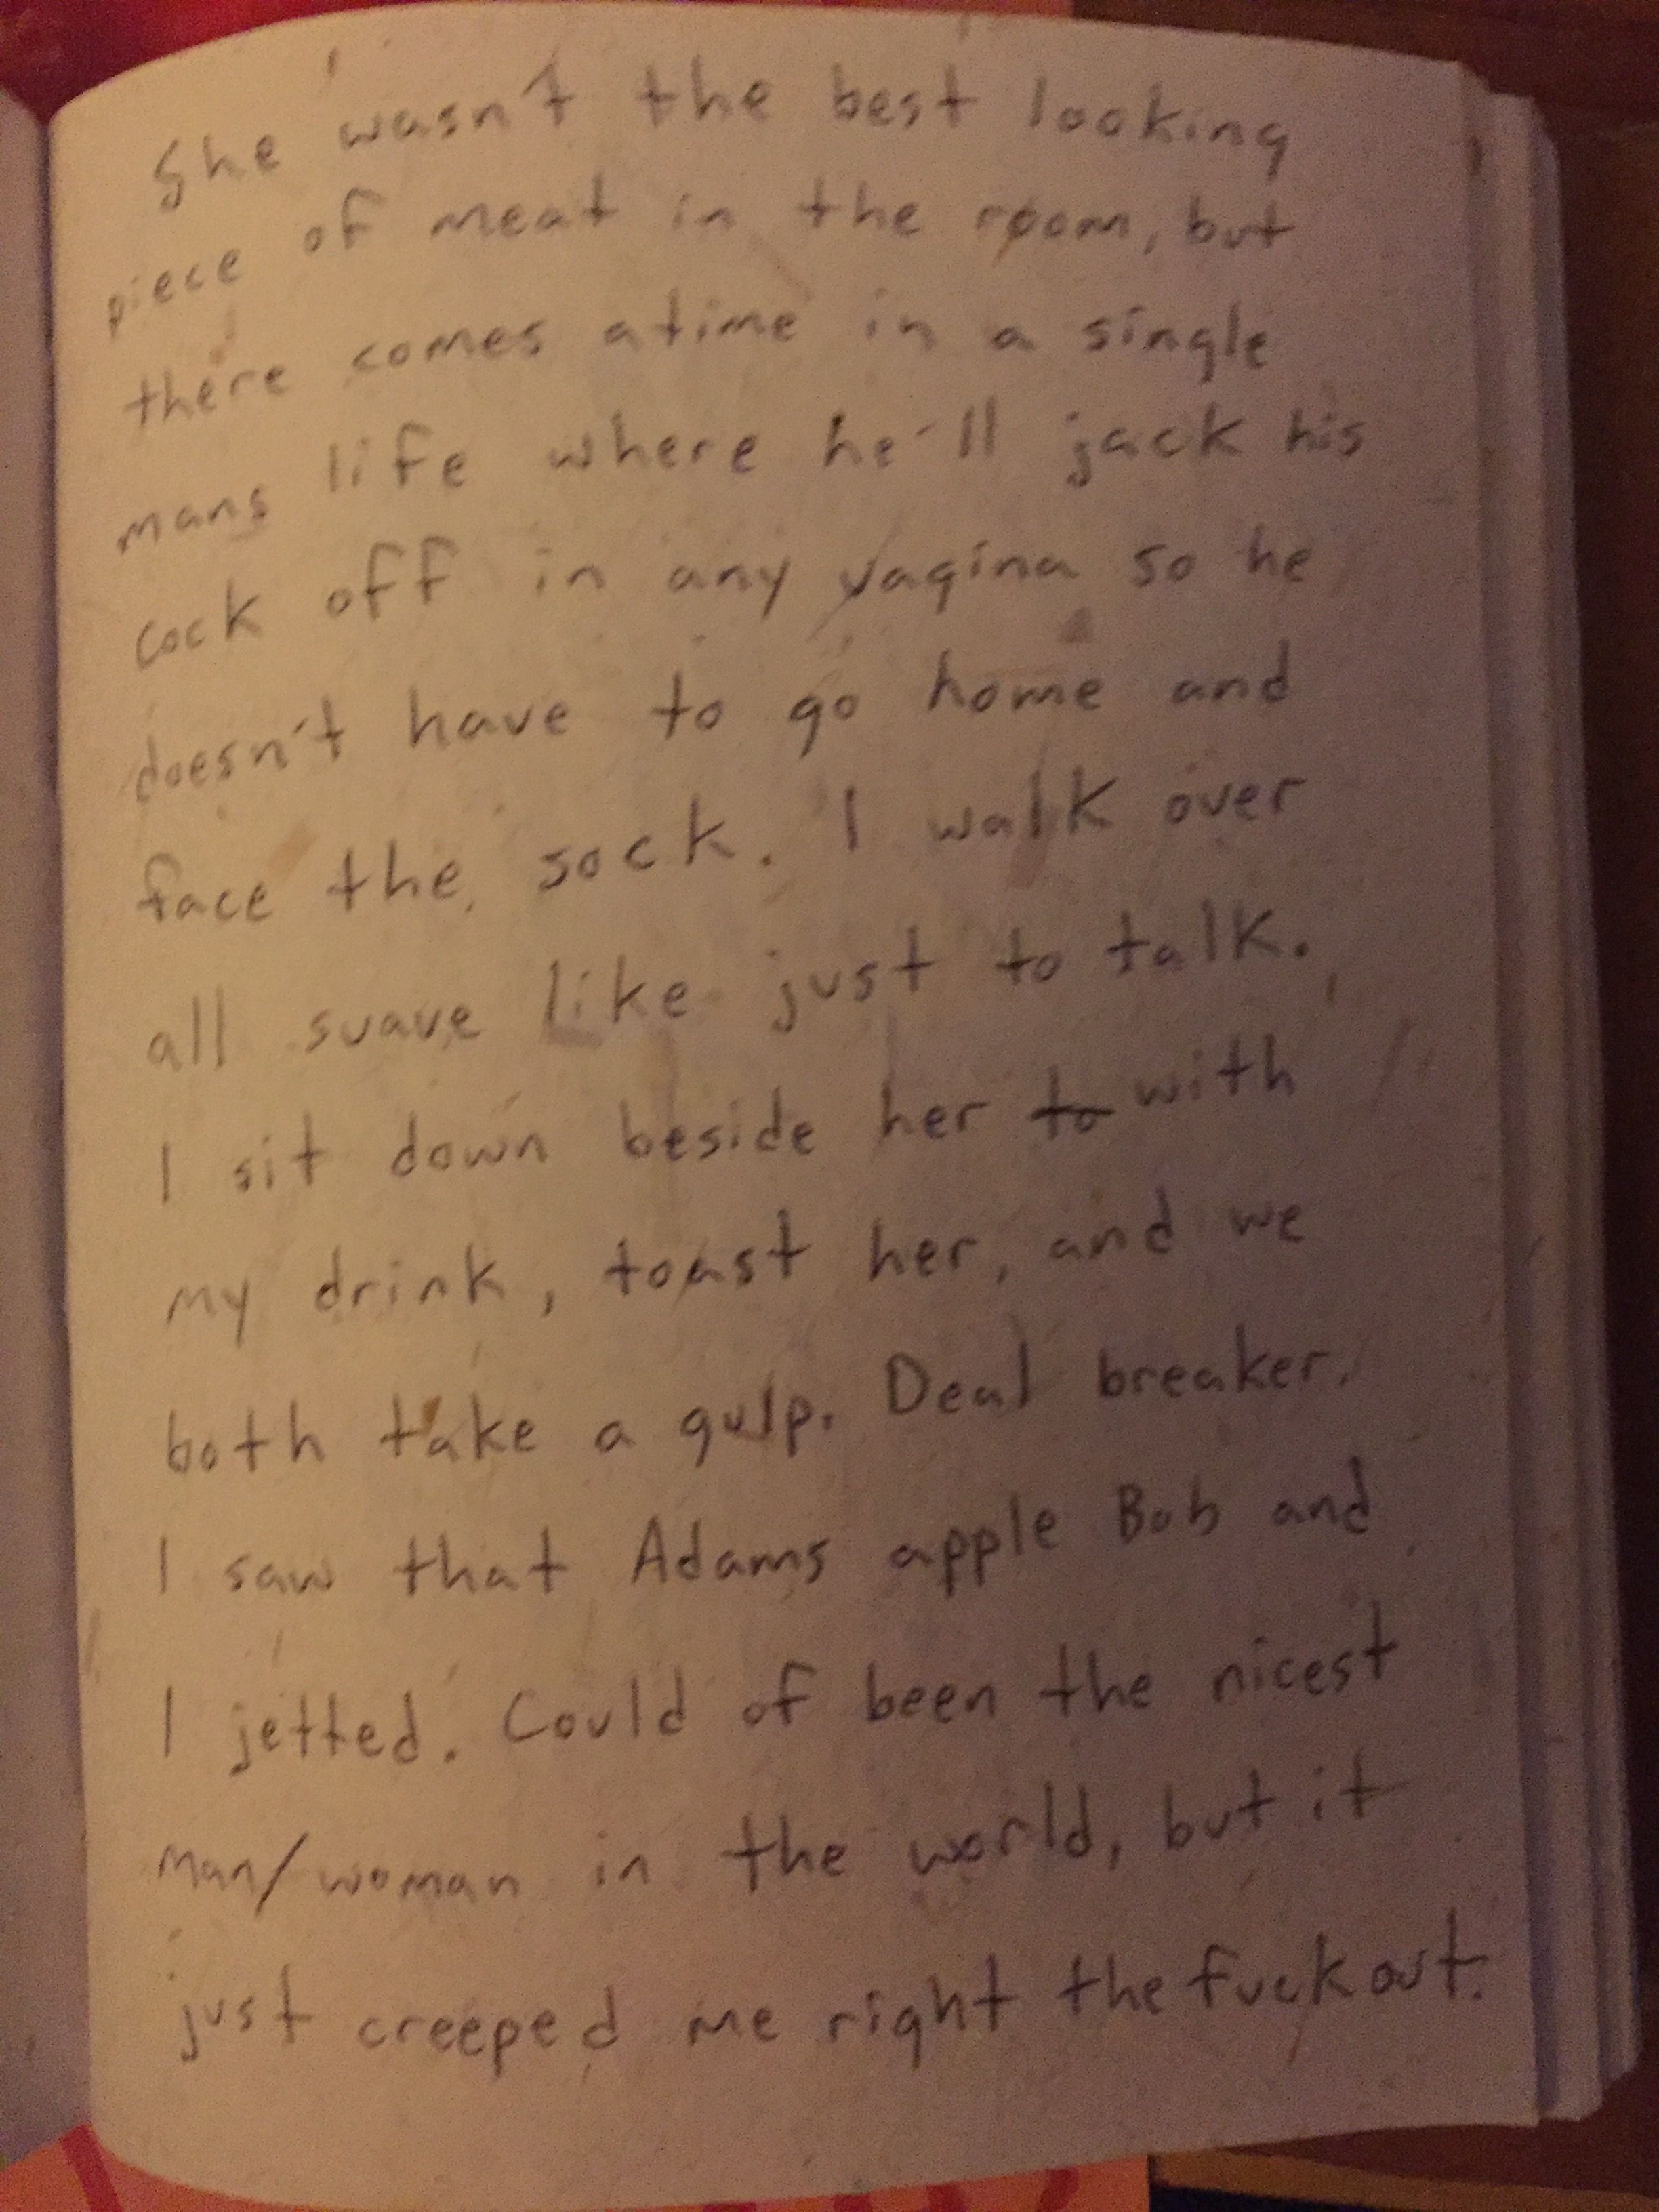 She wasn't the best looking
piece of meat in the room, but
there comes a time in a single
mans life where he'll jack his
cock off in any vagina so he
doesn't have to go home and
face the sock. I walk over
all suave like just to talk.
I sit down beside her to with
my drink, toast her, and we
both take a gulp. Deal breaker.
I saw that Adams apple Bob and
I jetted. Could of been the nicest
man/woman in the world, but it
just creeped me right the fuck out.